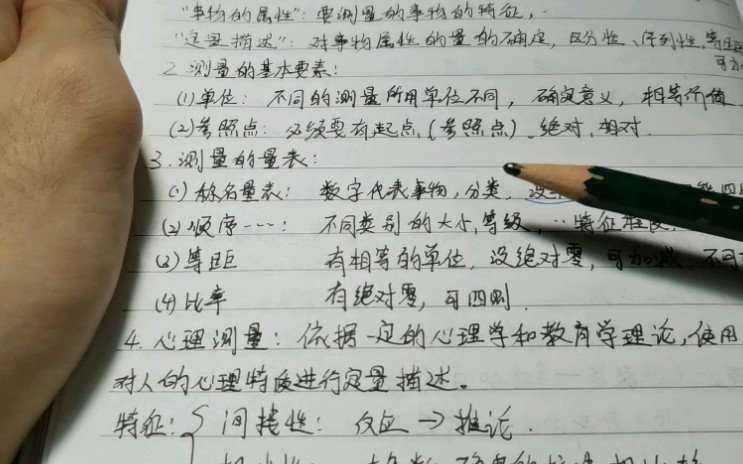 "事物的属性": 要测量的事物的特征,
"定量描述": 对事物属性的量的确定, 区分性、序列性、等距
可加
2. 测量的基本要素:
(1)单位: 不同的测量所用单位不同, 确定意义, 相等价值
(2)参照点: 必须要有起点(参照点). 绝对, 相对.
3. 测量的量表:
(1) 称名量表: 数字代表事物, 分类, 没
(2) 顺序---: 不同类别的大小, 等级, 特征程度,
(3) 等距 有相等的单位, 没绝对零, 可加减, 不可
(4) 比率 有绝对零, 可四则.
4. 心理测量: 依据一定的心理学和教育学理论, 使用
对人的心理特质进行定量描述。
特征: { 间接性: 反应→推论.